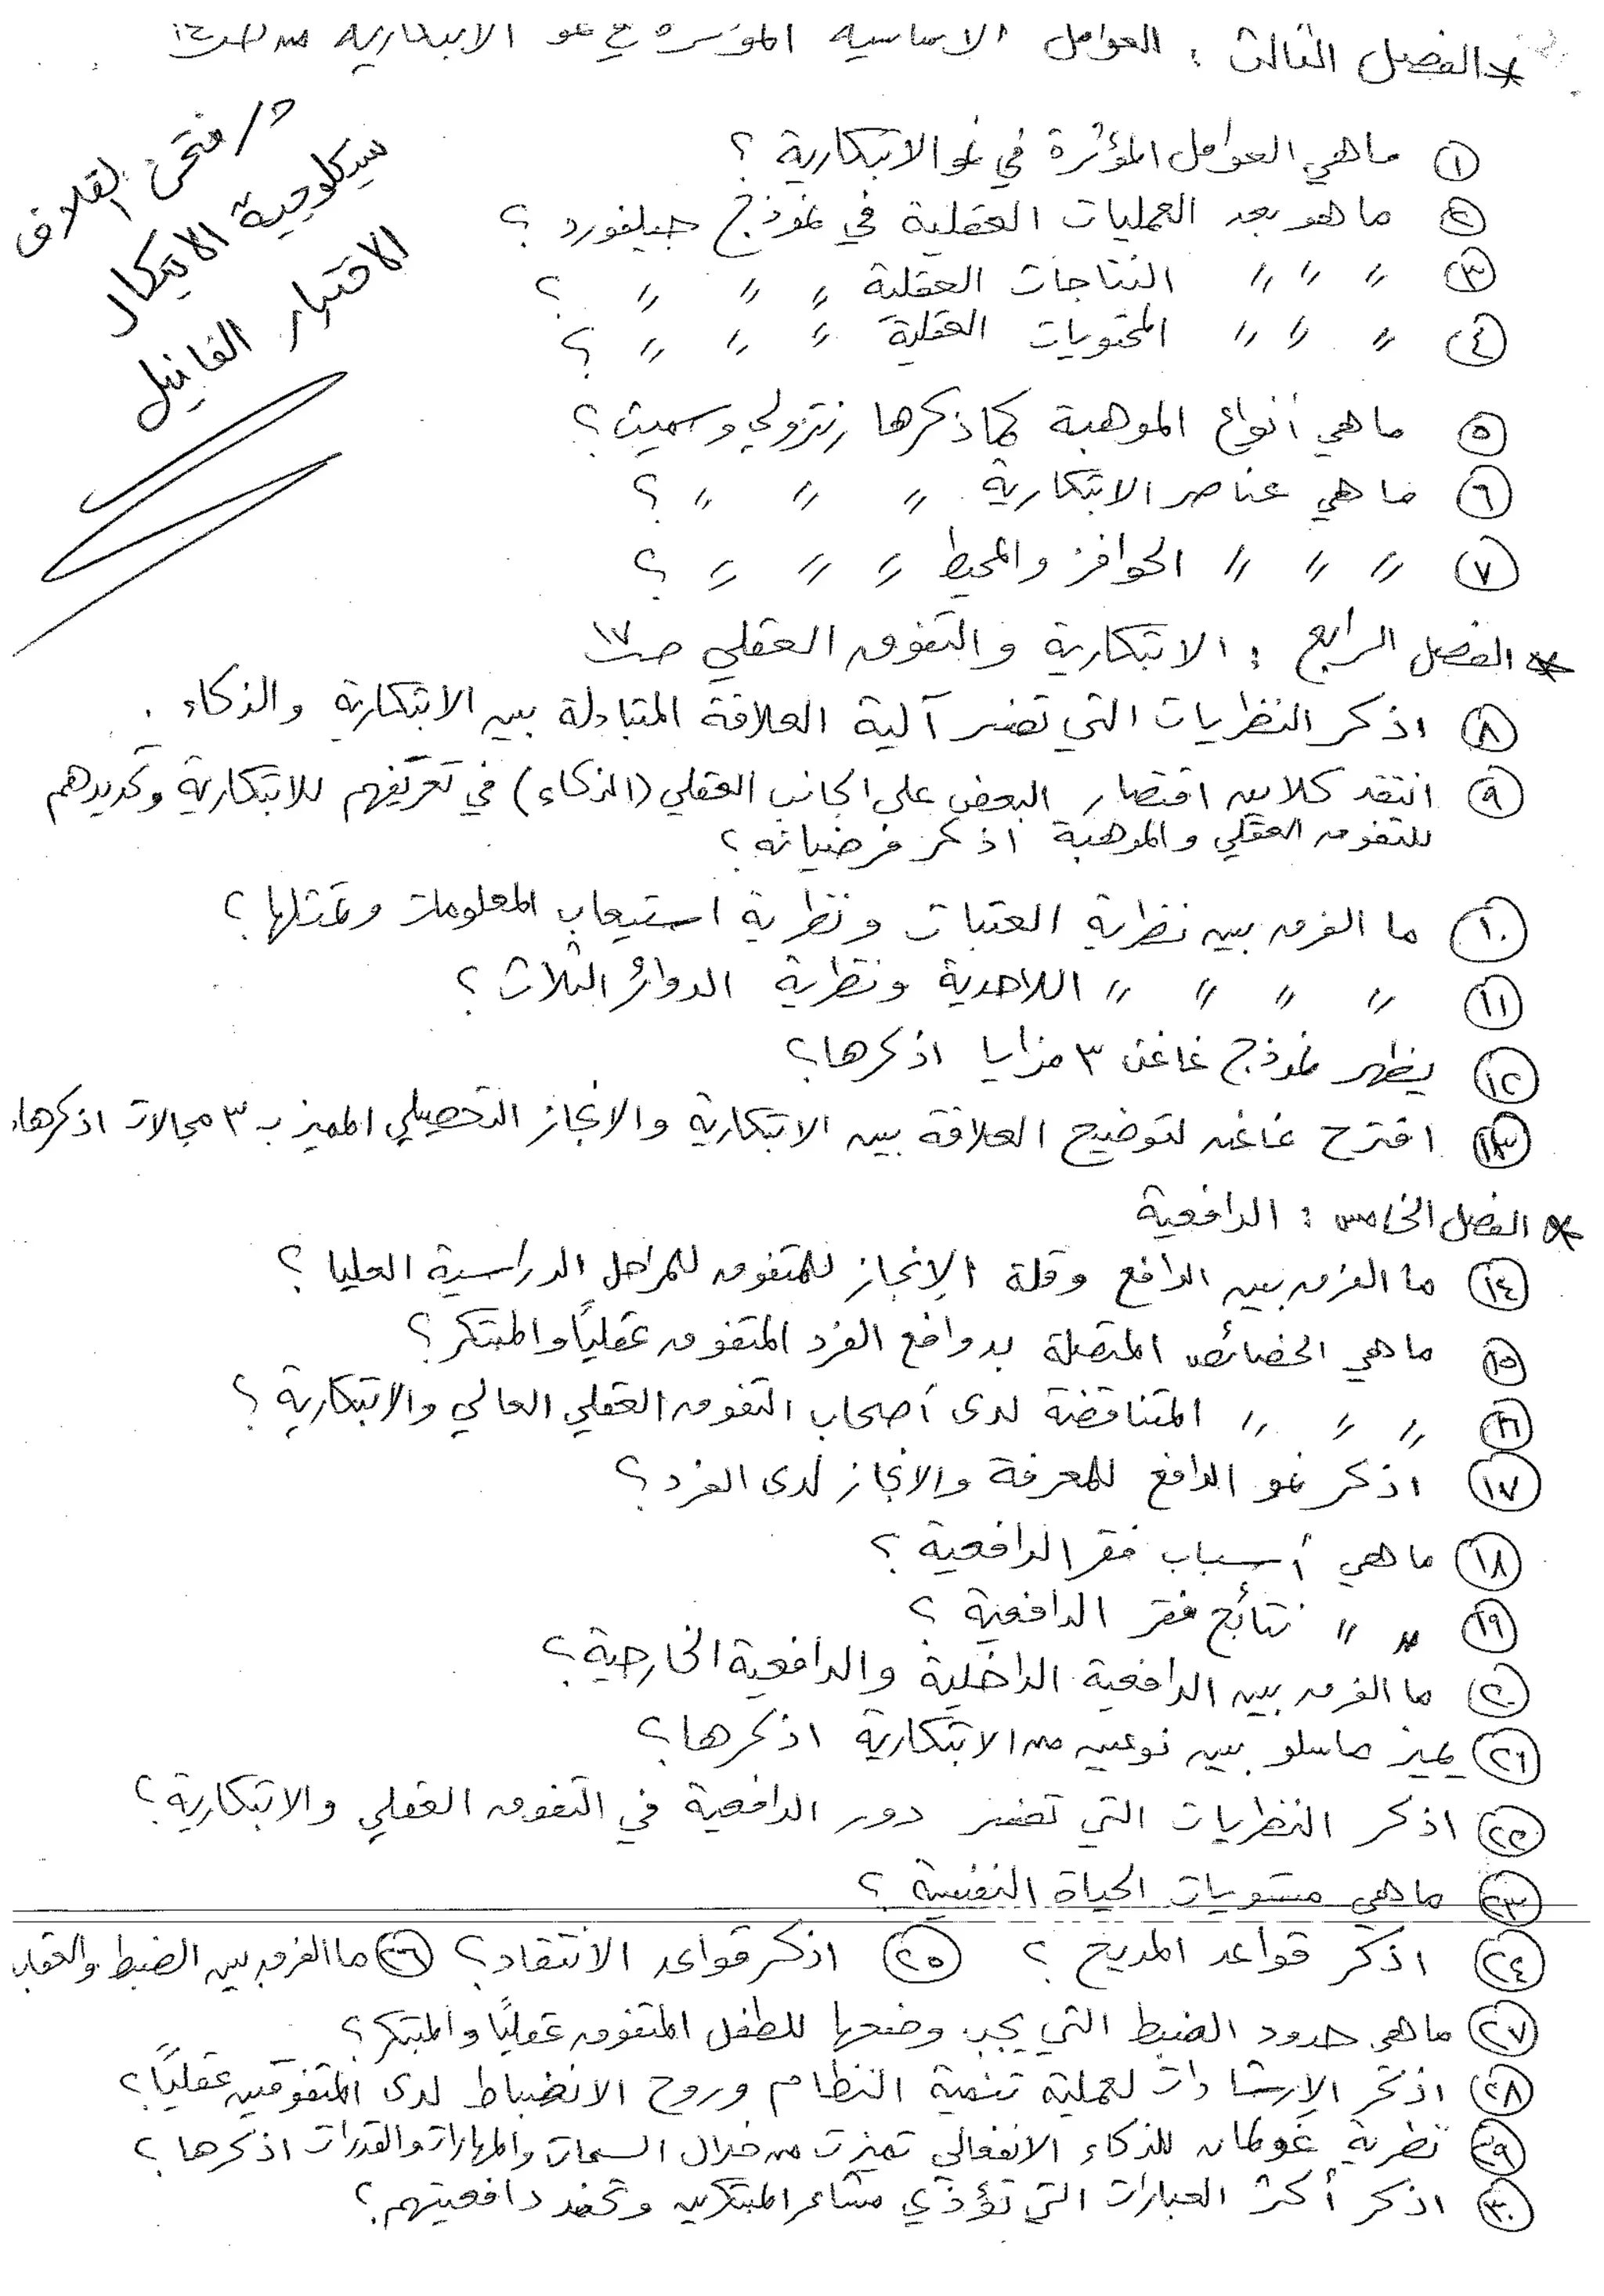 * الفصل الثالث : العوامل الاساسية المؤثرة في نمو الابتكارية من صـ١٤
د/ فتحي القلاف
سيكلوجية الابتكار
الاختبار الفاينل
١ ماهي العوامل المؤثرة في نمو الابتكارية ؟
٢ ما هو بعد العمليات العقلية في نموذج جيلفورد ؟
٣ 〃 〃 〃 النتاجات العقلية 〃 〃 〃 ؟
٤ 〃 〃 〃 المحتويات العقلية 〃 〃 〃 ؟
٥ ماهي أنواع الموهبة كما ذكرها رنزولي وسميث ؟
٦ ما هي عناصر الابتكارية 〃 〃 〃 ؟
٧ 〃 〃 〃 الحوافز والمحيط 〃 〃 〃 ؟
* الفصل الرابع : الابتكارية والتفوق العقلي صـ١٧
٨ اذكر النظريات التي تفسر آلية العلاقة المتبادلة بين الابتكارية والذكاء .
٩ انتقد كلاين اقتصار البعض على الجانب العقلي (الذكاء) في تعريفهم للابتكارية وتحديدهم
للتفوق العقلي والموهبة اذكر فرضياته ؟
١٠ ما الفرق بين نظرية العتبات ونظرية استيعاب المعلومات وتمثلها ؟
١١ 〃 〃 〃 〃 اللاحدية ونظرية الدوائر الثلاث ؟
١٢ يظهر نموذج غاغن ٣ مزايا اذكرها ؟
١٣ اقترح غاغن لتوضيح العلاقة بين الابتكارية والانجاز التحصيلي المميز بـ ٣ مجالات اذكرها.
* الفصل الخامس : الدافعية
١٤ ما الفرق بين الدافع وقلة الإنجاز للمتفوق للمراحل الدراسية العليا ؟
١٥ ماهي الخصائص المتصلة بدوافع الفرد المتفوق عقلياً والمبتكر ؟
١٦ 〃 〃 〃 المتناقضة لدى أصحاب التفوق العقلي العالي والابتكارية ؟
١٧ اذكر نمو الدافع للمعرفة والانجاز لدى الفرد ؟
١٨ ماهي أسباب فقر الدافعية ؟
١٩ 〃 〃 نتائج فقر الدافعية ؟
٢٠ ما الفرق بين الدافعية الداخلية والدافعية الخارجية ؟
٢١ يميز ماسلو بين نوعين من الابتكارية اذكرها ؟
٢٢ اذكر النظريات التي تفسر دور الدافعية في التفوق العقلي والابتكارية ؟
٢٣ ماهي مستويات الحياة النفسية ؟
٢٤ اذكر قواعد المديح ؟ ٢٥ اذكر قواعد الانتقاد ؟ ٢٦ ما الفرق بين الضبط والعقاب
٢٧ ماهي حدود الضبط التي يجب وضعها للطفل المتفوق عقلياً والمبتكر ؟
٢٨ اذكر الإرشادات لعملية تنمية النظام وروح الانضباط لدى المتفوقين عقلياً ؟
٢٩ نظرية غولمان للذكاء الانفعالي تميزت من خلال السمات والمهارات والقدرات اذكرها ؟
٣٠ اذكر أكثر العبارات التي تؤذي مشاعر المبتكرين وتخمد دافعيتهم ؟